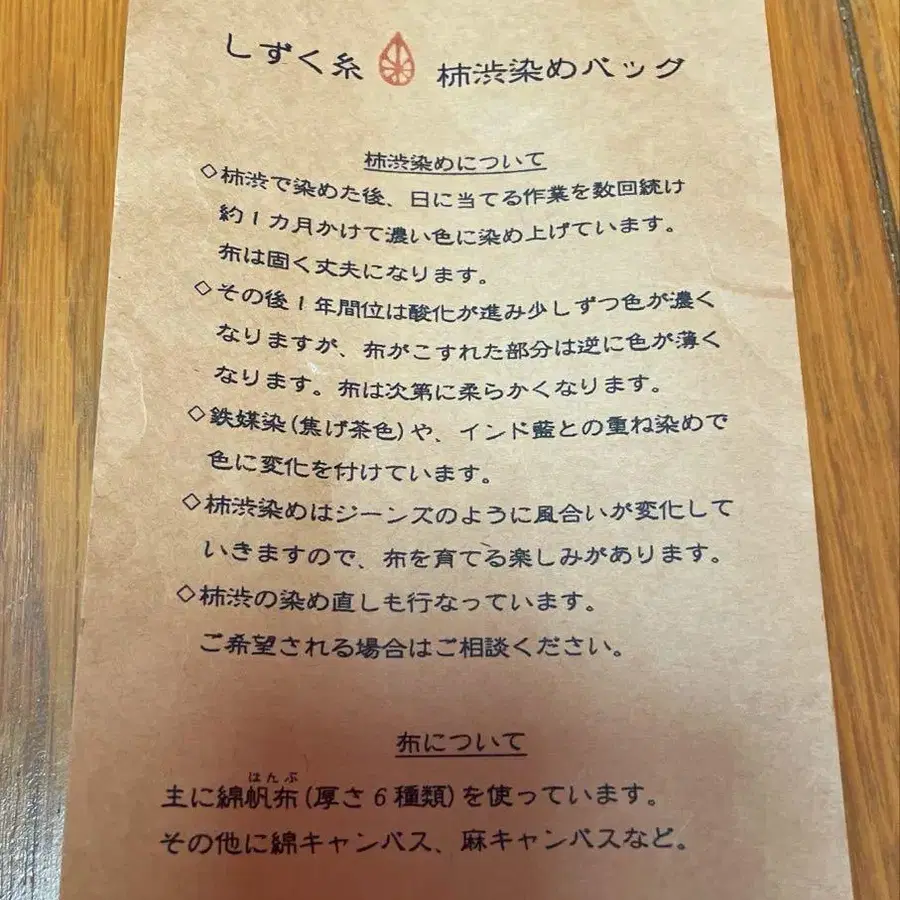 しずく糸 柿渋染めバッグ
柿渋染めについて
◇柿渋で染めた後、日に当てる作業を数回続け
約1カ月かけて濃い色に染め上げています。
布は固く丈夫になります。
◇その後1年間位は酸化が進み少しずつ色が濃く
なりますが、布がこすれた部分は逆に色が薄く
なります。布は次第に柔らかくなります。
◇鉄媒染(焦げ茶色)や、インド藍との重ね染めで
色に変化を付けています。
◇柿渋染めはジーンズのように風合いが変化して
いきますので、布を育てる楽しみがあります。
◇柿渋の染め直しも行なっています。
ご希望される場合はご相談ください。
布について
はんぷ
主に綿帆布(厚さ6種類)を使っています。
その他に綿キャンバス、麻キャンバスなど。